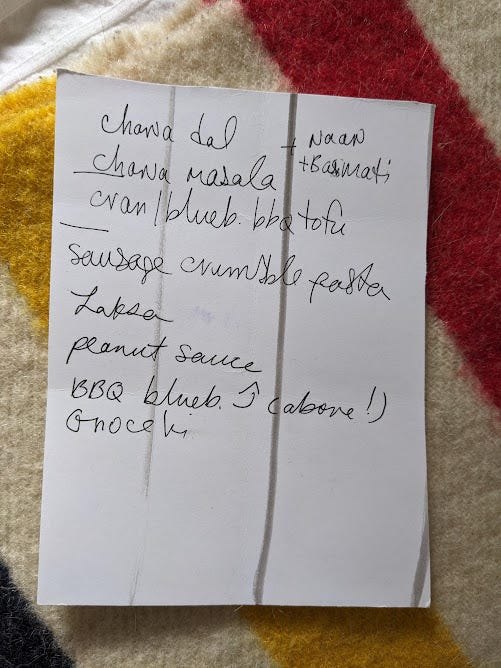 chana dal + Naan
chana masala + Basmati
cran/blueb. bbq tofu
sausage crumble pasta
Laksa
peanut sauce
BBQ blueb. ↑ (above!)
Gnocchi